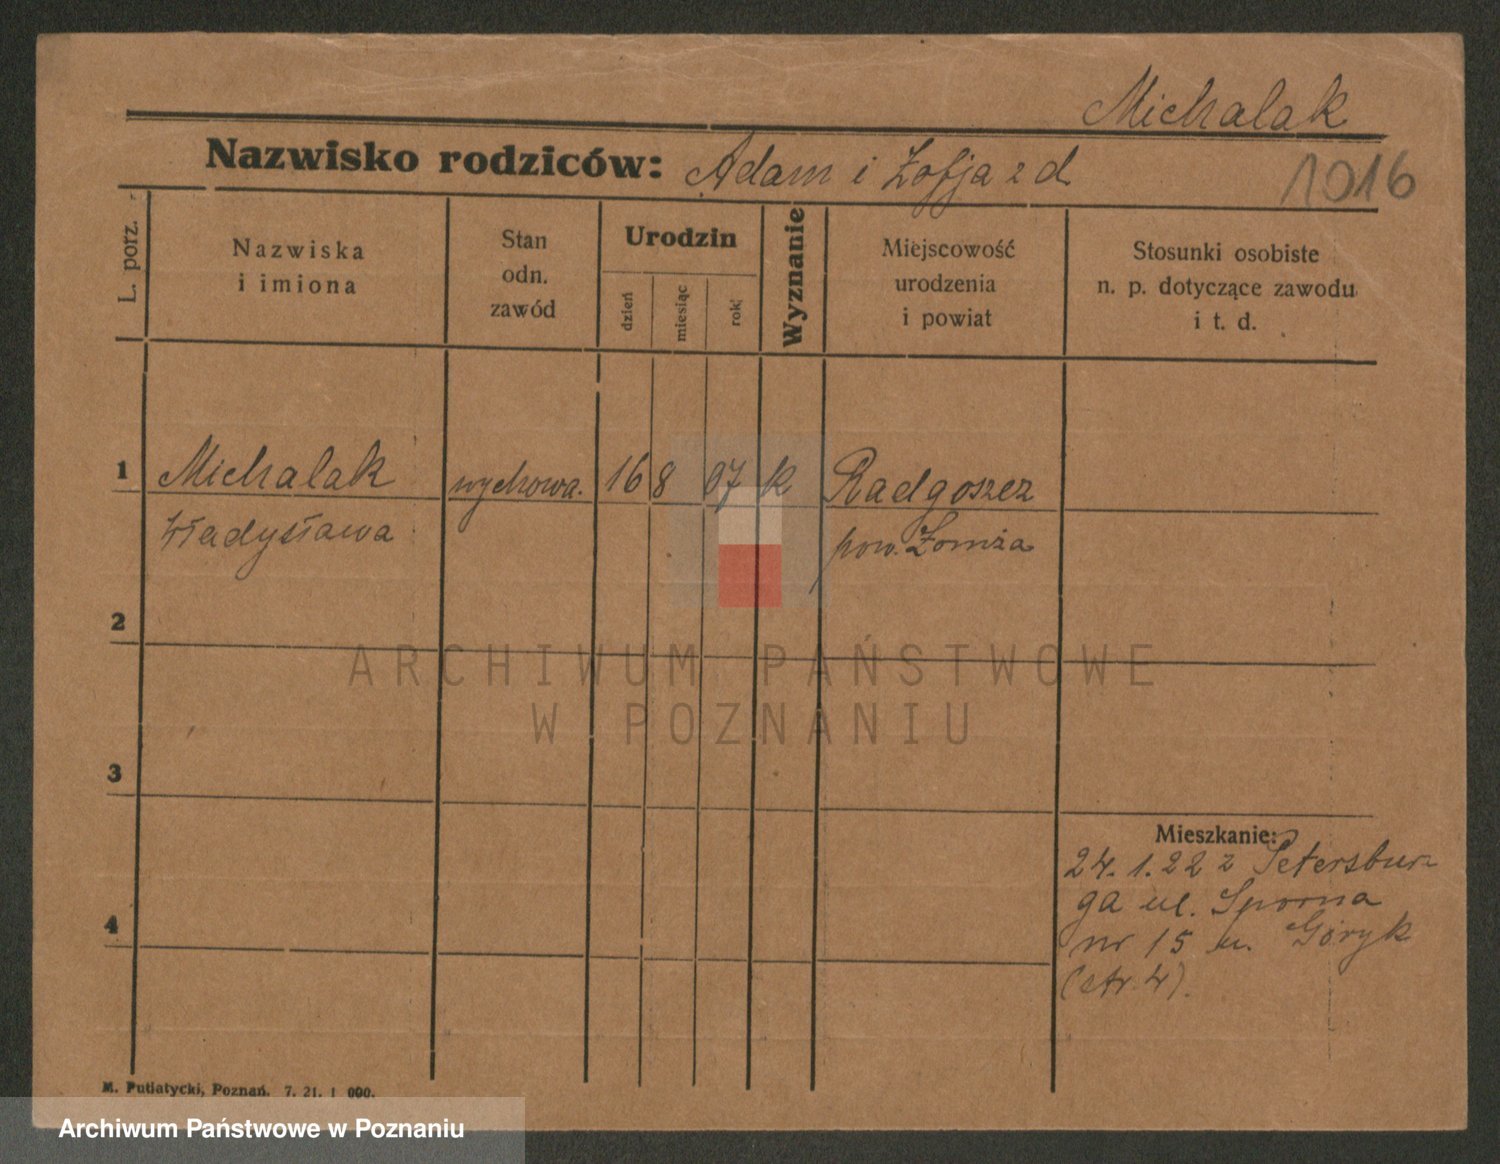 Michalak
Nazwisko rodziców: Adam i Zofja z d.
1016
L. porz.
Nazwiska
i imiona
Stan
odn.
zawód
Urodzin
dzień
miesiąc
rok
Wyznanie
Miejscowość
urodzenia
i powiat
Stosunki osobiste
n. p. dotyczące zawodu
i t. d.
1 Michalak wychowa. 16 8 07 k Radgoszcz
Władysława pow. Łomża
2
ARCHIWUM PAŃSTWOWE
W POZNANIU
3
Mieszkanie:
24. 1. 22 z Petersbur-
ga ul. Sporna
4
nr 15 u. Góryk
(str. 4).
M. Putiatycki, Poznań. 7. 21. 1 000.
Archiwum Państwowe w Poznaniu